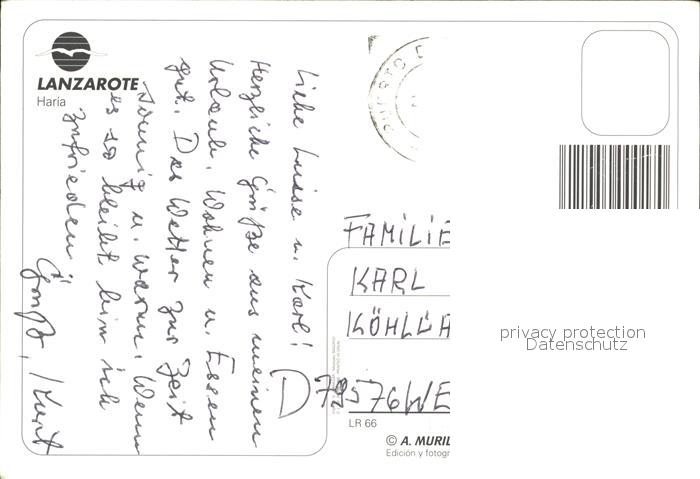 LANZAROTE
Haría
Liebe Luise u. Karl!
Herzliche Grüße aus meinem
Urlaub. Wohnen u. Essen
gut. Das Wetter zur Zeit
sonnig u. warm. Wenn
es so bleibt bin ich
zufrieden.
Gruß, Kurt
PUERTO D
FAMILIE
KARL
KÖHLGA
D 79576 WE
privacy protection
Datenschutz
LR 66
© A. MURIL
Edición y fotogr